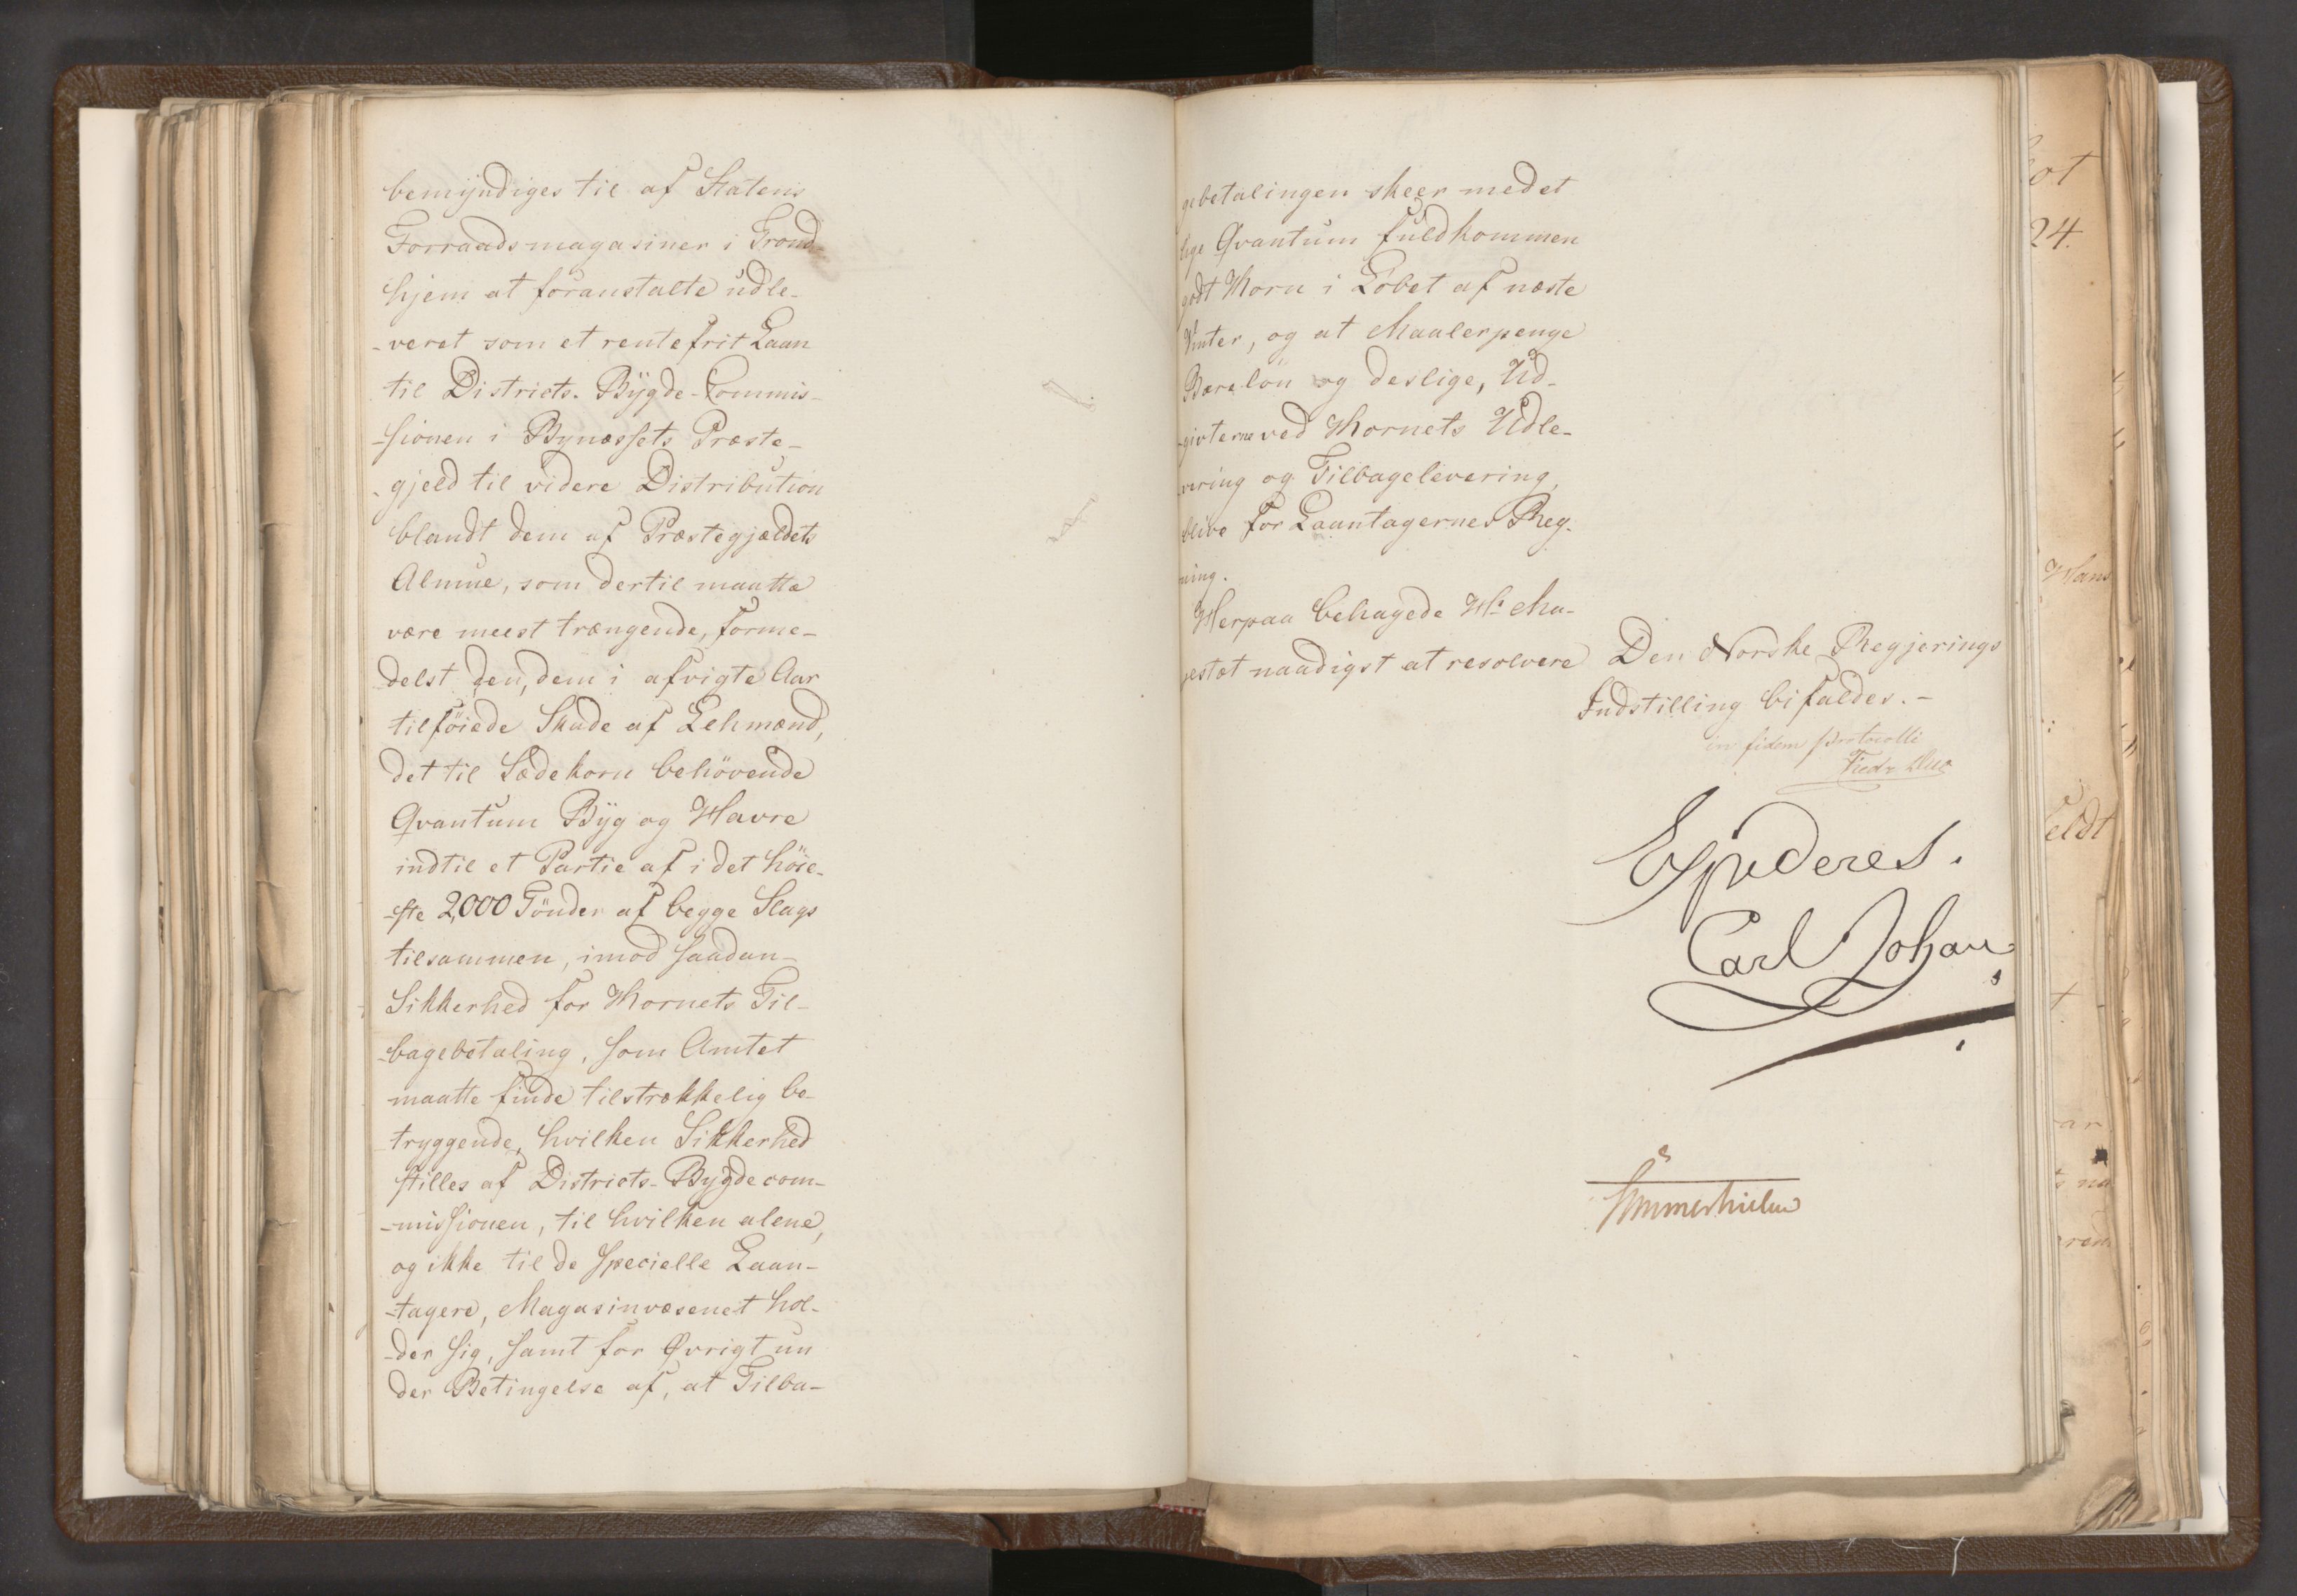 bemÿndiges til af Statens
Forraadsmagasiner i Trond-
hjem at foranstalte udle-
-veret som et rentefrit Laan
til Districts-Bÿgde-Commis-
-sionen i Bynæssets Præste-
-gjeld til videre Distribution
blandt dem af Præstegjældets
Almue, som dertil maatte
være meest trængende, forme-
delst den, dem i afvigte Aar
tilföiede Skade af Lehmænd,
det til Sædekorn behövende
Qvantum Bÿg og Havre
indtil et Partie af i det höie-
-ste 2,000 Tönder af begge Slags
tilsammen, imod saadan
Sikkerhed for Kornets Til-
-bagebetaling, som Amtet
maatte finde tilstrækkelig be-
tryggende, hvilken Sikkerhed
stilles af Districts-Bygdecom-
-missionen, til hvilken alene,
og ikke til de specielle Laan-
-tagere, Magasinvæsenet hol-
-der sig, samt for Øvrigt un
der Betingelse af, at Tilba-
gebetalingen skeer med et
lige Qvantum fuldkommen
godt Korn i Löbet af næste
Vinter, og at Maalerpenge
Bærelön og deslige, Ud-
-givterne ved Kornets Udle-
vering og Tilbagelevering,
blive for Laantagernes Reg-
ning.
Herpaa behagede Hs Ma-
jestæt naadigst at resolvere
Den Norske Regjerings
Indstilling bifaldes.-
in fidem protocolli
Fredr Due
Expederes.
Carl Johan
ot
24.
Hans
feldt